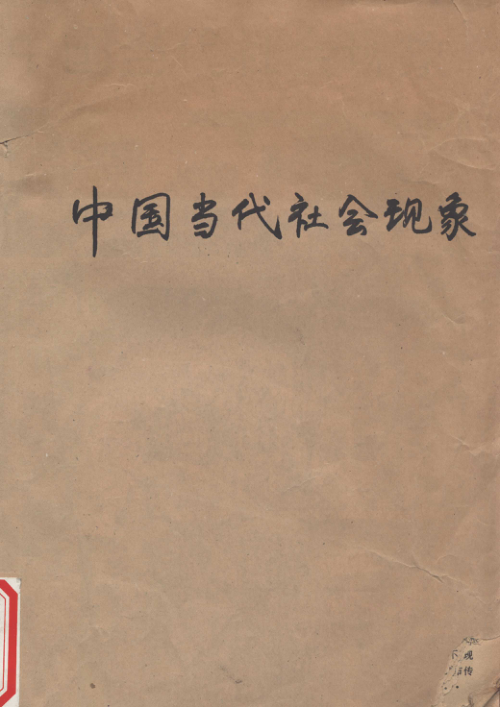 中国当代社会现象
观
传